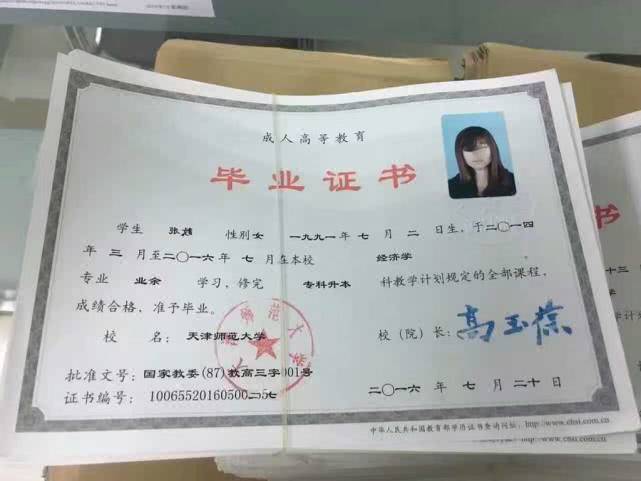 成人高等教育
毕业证书
学生 张婧 性别 女 一九九一年 七 月 二 日生，于二〇一四
年 三 月至二〇一六年 七 月在本校 经济学
专业 业余 学习，修完 专科升本 科教学计划规定的全部课程，
成绩合格，准予毕业。
校 名： 天津师范大学 校（院）长：高玉葆
批准文号：国家教委(87)教高三字001号
证书编号： 二〇一六年 七 月 二十日
中华人民共和国教育部学历证书查询网址：http://www.chsi.com.cn
http://www.chsi.com.cn
书
十三